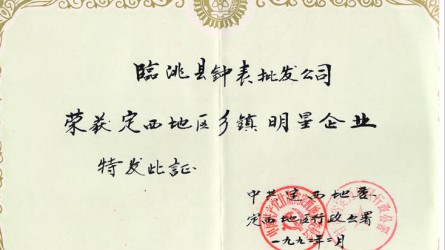 臨洮县钟表批发公司
荣获定西地区乡鎮明星企业
特发此証
中共定西地委
定西地区行政公署
一九九二年二月